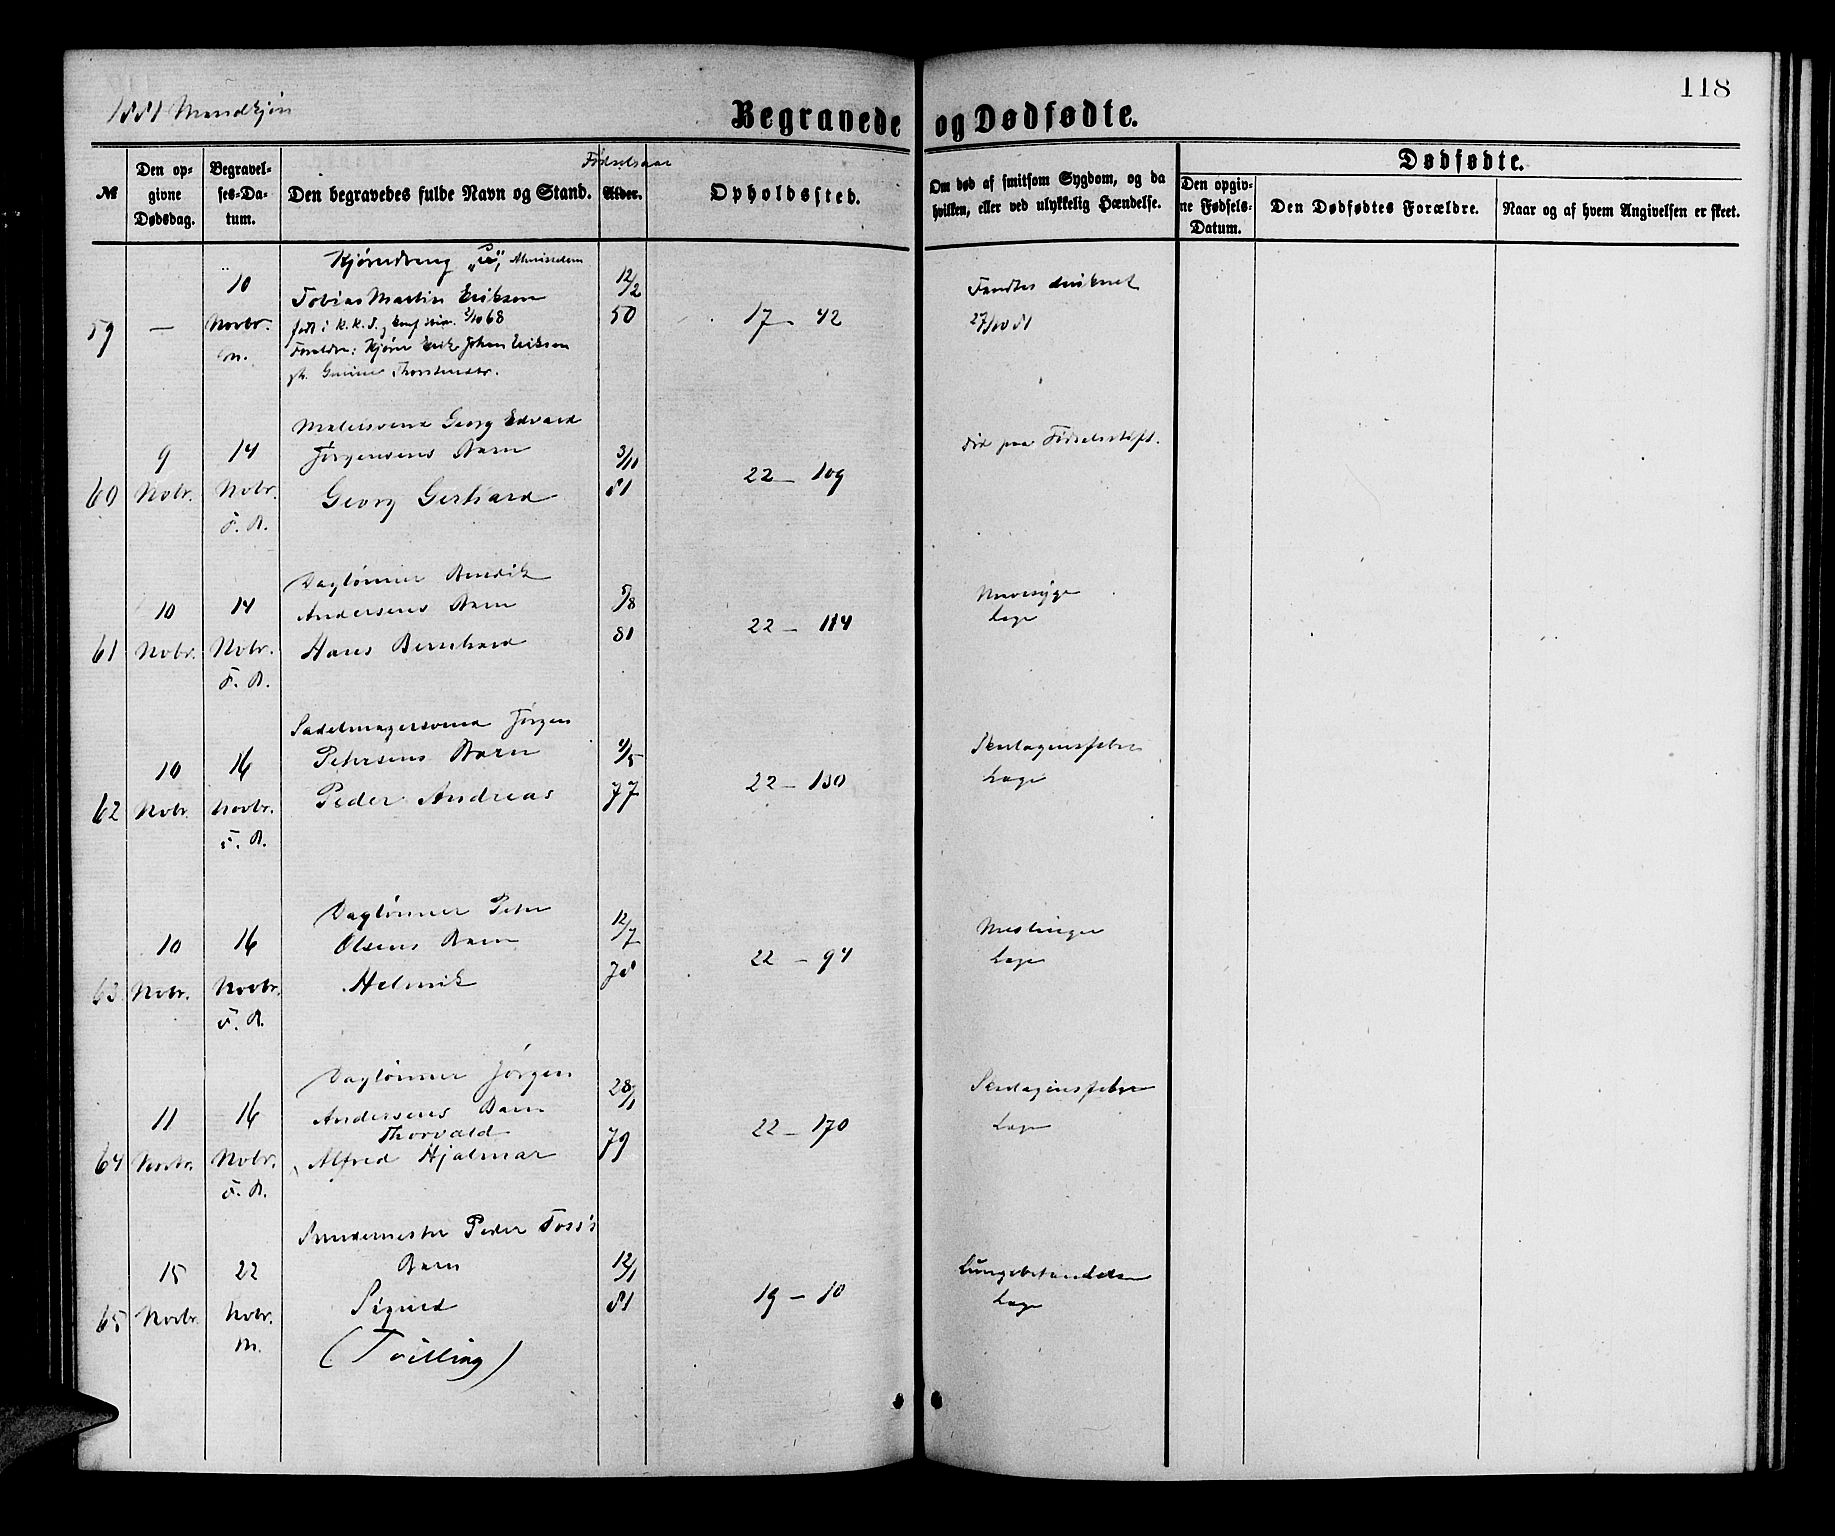 118
1881 Mandkjøn
Begravede og Dødfødte.
№
Den opgivne Dødsdag.
Begravelses-Datum.
Den begravedes fulde Navn og Stand.
Fødselsaar
Alder.
Opholdssted.
Om død af smitsom Sygdom, og da hvilken, eller ved ulykkelig Hændelse.
Dødfødte.
Den opgivne Fødsels-Datum.
Den Dødfødtes Forældre.
Naar og af hvem Angivelsen er skeet.
59
—
10 Novbr. M.
Kjøredreng
Tobias Martin Eriksen
født i K.K.S., Konf.
Forældre: Kjører Erik Johan Eriksen
Thorstensdtr.
12/2 50
17 – 42
Fandtes druknet
27/10 81
60
9 Nvbr.
14 Nvbr. F. A.
Malersvend Georg Edvard
Jørgensens Barn
Georg Gerhard
3/10 81
22 – 109
Død paa Fødselsstift.
61
10 Nvbr.
14 Nvbr. F. A.
Daglønner Bendik
Andersens Barn
Hans Bernhard
5/8 81
22 – 114
Mavesyge
Læge
62
10 Nvbr.
16 Novbr. F. A.
Sadelmagersvend Jørgen
Petersens Barn
Peder Andreas
4/5 77
22 – 130
Skarlagensfeber
Læge
63
10 Nvbr.
16 Novbr. F. A.
Daglønner Peter
Olsens Barn
Helmik
12/7 78
22 – 94
Meslinger
Læge
64
11 Novbr.
16 Nvbr. F. A.
Daglønner Jørgen
Andersens Barn
Thorvald
Alfred Hjalmar
28/1 79
22 – 170
Skarlagensfeber
Læge
65
15 Novbr.
22 Nvbr. M.
Smedemester Peder Foss's
Barn
Sigurd
(Tvilling)
12/1 81
19 – 10
Lungebetændelse
Læge